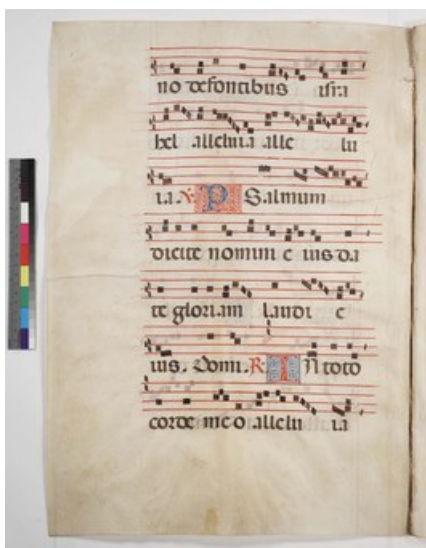 no de fontibus isra
hel alleluia alle lu
ia. V. PSalmum
dicite nomini e ius da
te gloriam laudi e
ius. Domi. R. IN toto
corde meo allelu ia